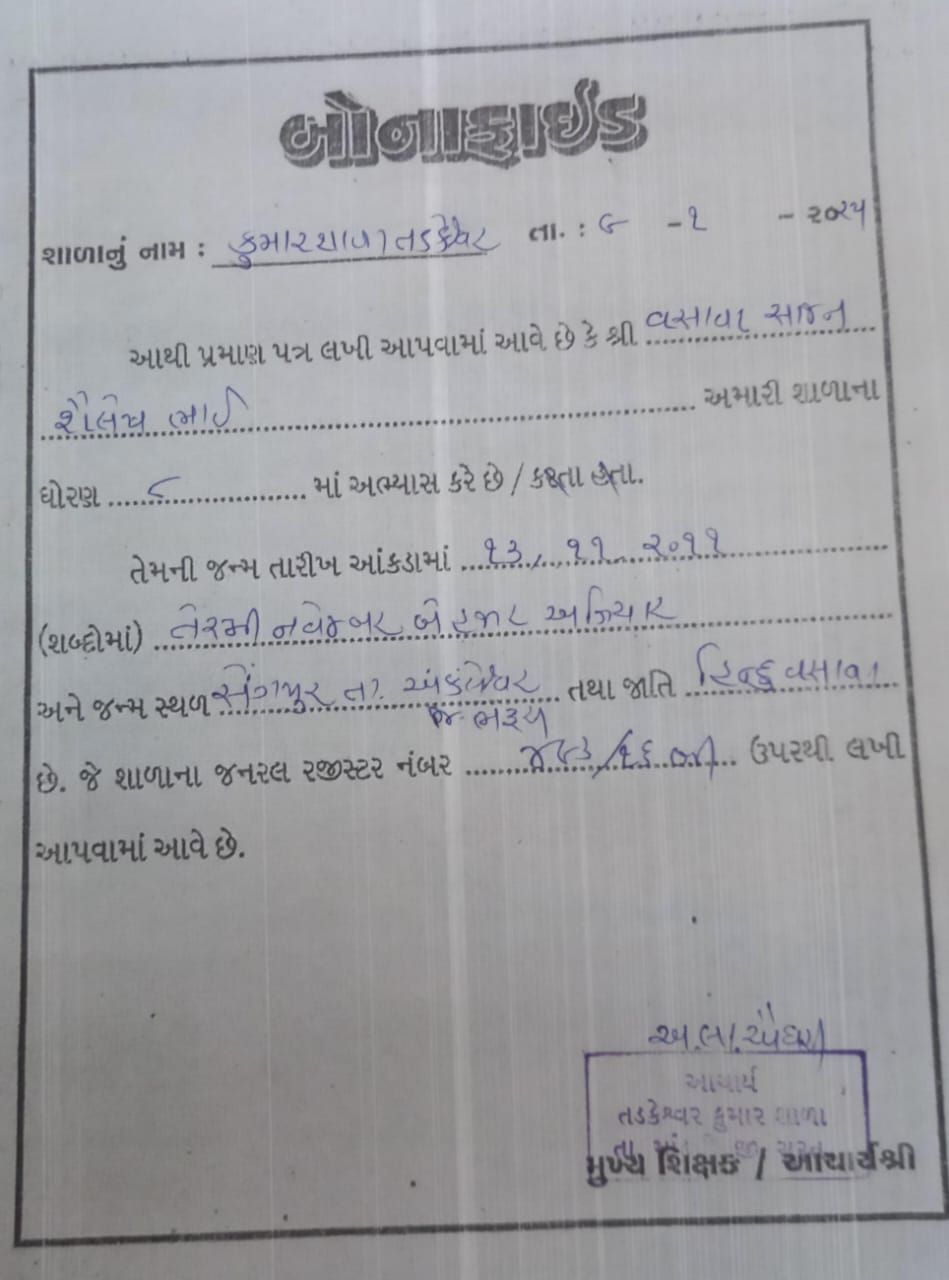 બોનાફાઈડ
શાળાનું નામ : કુમારશાળા તડકેશ્વર તા. : ૯ -૧ - ૨૦૨૫
આથી પ્રમાણ પત્ર લખી આપવામાં આવે છે કે શ્રી વસાવા સાજન
શૈલેષ ભાઈ અમારી શાળાના
ધોરણ ૮ માં અભ્યાસ કરે છે / કરતા હતા.
તેમની જન્મ તારીખ આંકડામાં ૧૩, ૧૧ ૨૦૧૧
(શબ્દોમાં) તેરમી નવેમ્બર બે હજાર અગિયાર
અને જન્મ સ્થળ સેંગપુર તા. અંકલેશ્વર તથા જાતિ હિન્દુ વસાવા
જી. ભરૂચ
છે. જે શાળાના જનરલ રજીસ્ટર નંબર ઉપરથી લખી
આપવામાં આવે છે.
આચાર્ય
તડકેશ્વર કુમાર શાળા
મુખ્ય શિક્ષક / આચાર્યશ્રી